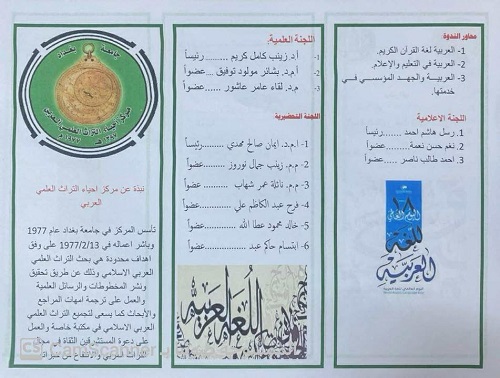 محاور الندوة
1- العربية لغة القرآن الكريم.
2- العربية في التعليم والإعلام.
3- العربية والجهد المؤسسي في
خدمتها.
اللجنة الاعلامية
1- رسل هاشم احمد .......رئيساً
2- نغم حسن نعمة........عضواً
3- احمد طالب ناصر .....عضواً
١٨
اليوم العالمي
للغة
العربية
اللجنة العلمية:
1- أ.د. زينب كامل كريم .........رئيساً
2- أ.م.د. بشائر مولود توفيق ....عضواً
3- أ.م.د. لقاء عامر عاشور......عضواً
اللجنة التحضيرية
1- ا.م.د. ايمان صالح مهدي.........رئيساً
2- م.م. زينب جمال نوروز ........عضواً
3- م.م. نائلة عمر شهاب ........عضواً
4- فرح عبد الكاظم علي .........عضواً
5- خالد محمود عطا الله .........عضواً
6- ابتسام حاكم عبد ............عضواً
اللغة العربية
جامعة بغداد
مركز إحياء التراث العلمي العربي
نبذة عن مركز احياء التراث العلمي
العربي
تأسس المركز في جامعة بغداد عام 1977
وباشر اعماله في 1977/2/13 على وفق
اهداف محدودة هي بحث التراث العلمي
العربي الاسلامي وذلك عن طريق تحقيق
ونشر المخطوطات والرسائل العلمية
والعمل على ترجمة امهات المراجع
والأبحاث كما يسعى لتجميع التراث العلمي
العربي الاسلامي في مكتبة خاصة والعمل
على دعوة المستشرقين الثقاة في مجال
التراث العربي
CS CamScanner